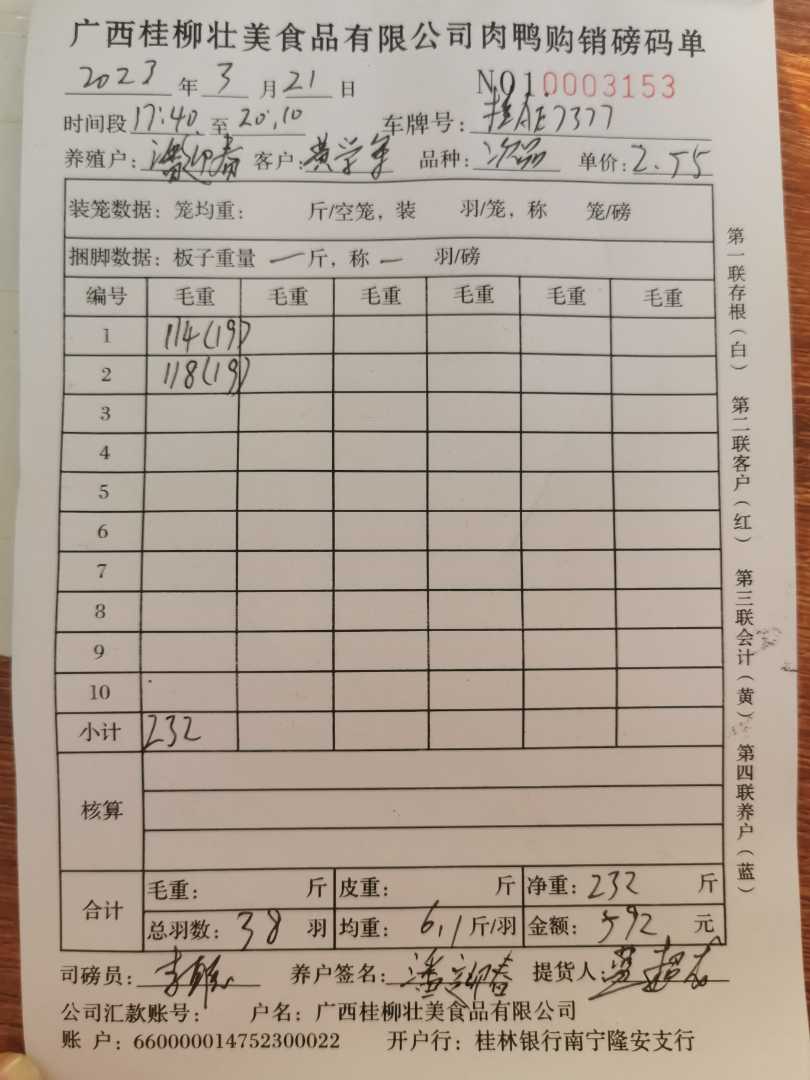 广西桂柳壮美食品有限公司肉鸭购销磅码单
2023 年 3 月 21 日 NO10003153
时间段 17:40 至 20:10 车牌号: 桂AE7377
养殖户: 潘迎春 客户: 黄学军 品种: 次品 单价: 2.55
装笼数据: 笼均重: 斤/空笼, 装 羽/笼, 称 笼/磅
捆脚数据: 板子重量 一 斤, 称 一 羽/磅
编号 毛重 毛重 毛重 毛重 毛重 毛重
1 114(19)
2 118(19)
3
4
5
6
7
8
9
10
小计 232
核算
合计 毛重: 斤 皮重: 斤 净重: 232 斤
总羽数: 38 羽 均重: 6.1 斤/羽 金额: 592 元
司磅员: 养户签名: 潘迎春 提货人:
公司汇款账号: 户名: 广西桂柳壮美食品有限公司
账 户: 660000014752300022 开户行: 桂林银行南宁隆安支行
第一联存根(白) 第二联客户(红) 第三联会计(黄) 第四联养户(蓝)